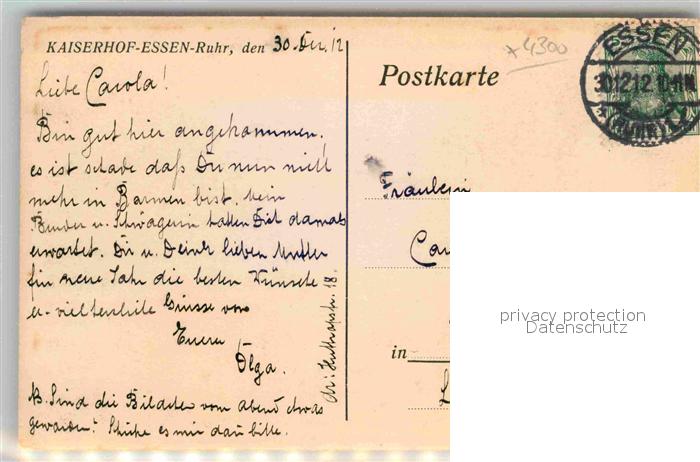 KAISERHOF-ESSEN-Ruhr, den 30 Dez. 12
* 4300
ESSEN
30.12.12. 10-11V.
* (RUHR) 1
Postkarte
Liebe Carola!
Bin gut hier angekommen,
es ist schade daß Du nun nicht
mehr in Barmen bist. Mein
Bruder u. Schwägerin hatten Dich damals
erwartet. Dir u. Deiner lieben Mutter
für neue Jahr die besten Wünsche
u. viel herzliche Grüsse von
Eurer
Olga.
18.
NB. Sind die Bilder vom abend etwas
geworden? Schicke es mir dann bitte.
Fräulein
in
privacy protection
Datenschutz